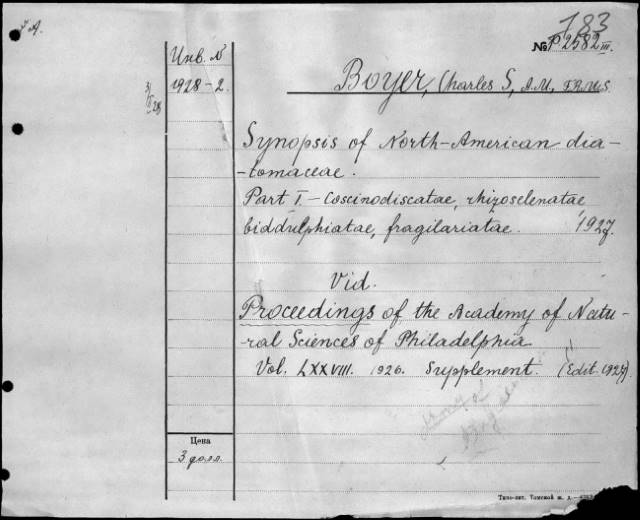 183
№ P2582 III.
Инв. №
1928-2.
Boyer, Charles S, A.M., F.R.M.S.
Synopsis of North-American dia-
-tomaceae.
Part I.- Coscinodiscatae, rhizoselenatae
biddulphiatae, fragilariatae. 1927.
Vid.
Proceedings of the Academy of Natu-
-ral Sciences of Philadelphia
Vol. LXXVIII. 1926. Supplement. (Edit. 1927).
Цена
3 долл.
Типо-лит. Томской ж. д.